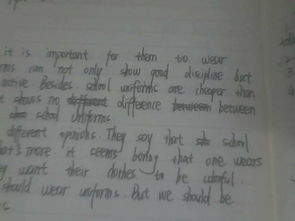 it is important for them to wear
rms can not only show good discipline but
active Besides. school uniforms are cheaper than
t shows no different difference between between
school uniforms
different opinions. They say that school
hat's more it seems boring that one wears
y want their clothes to be colorful.
should wear uniforms. But we should be